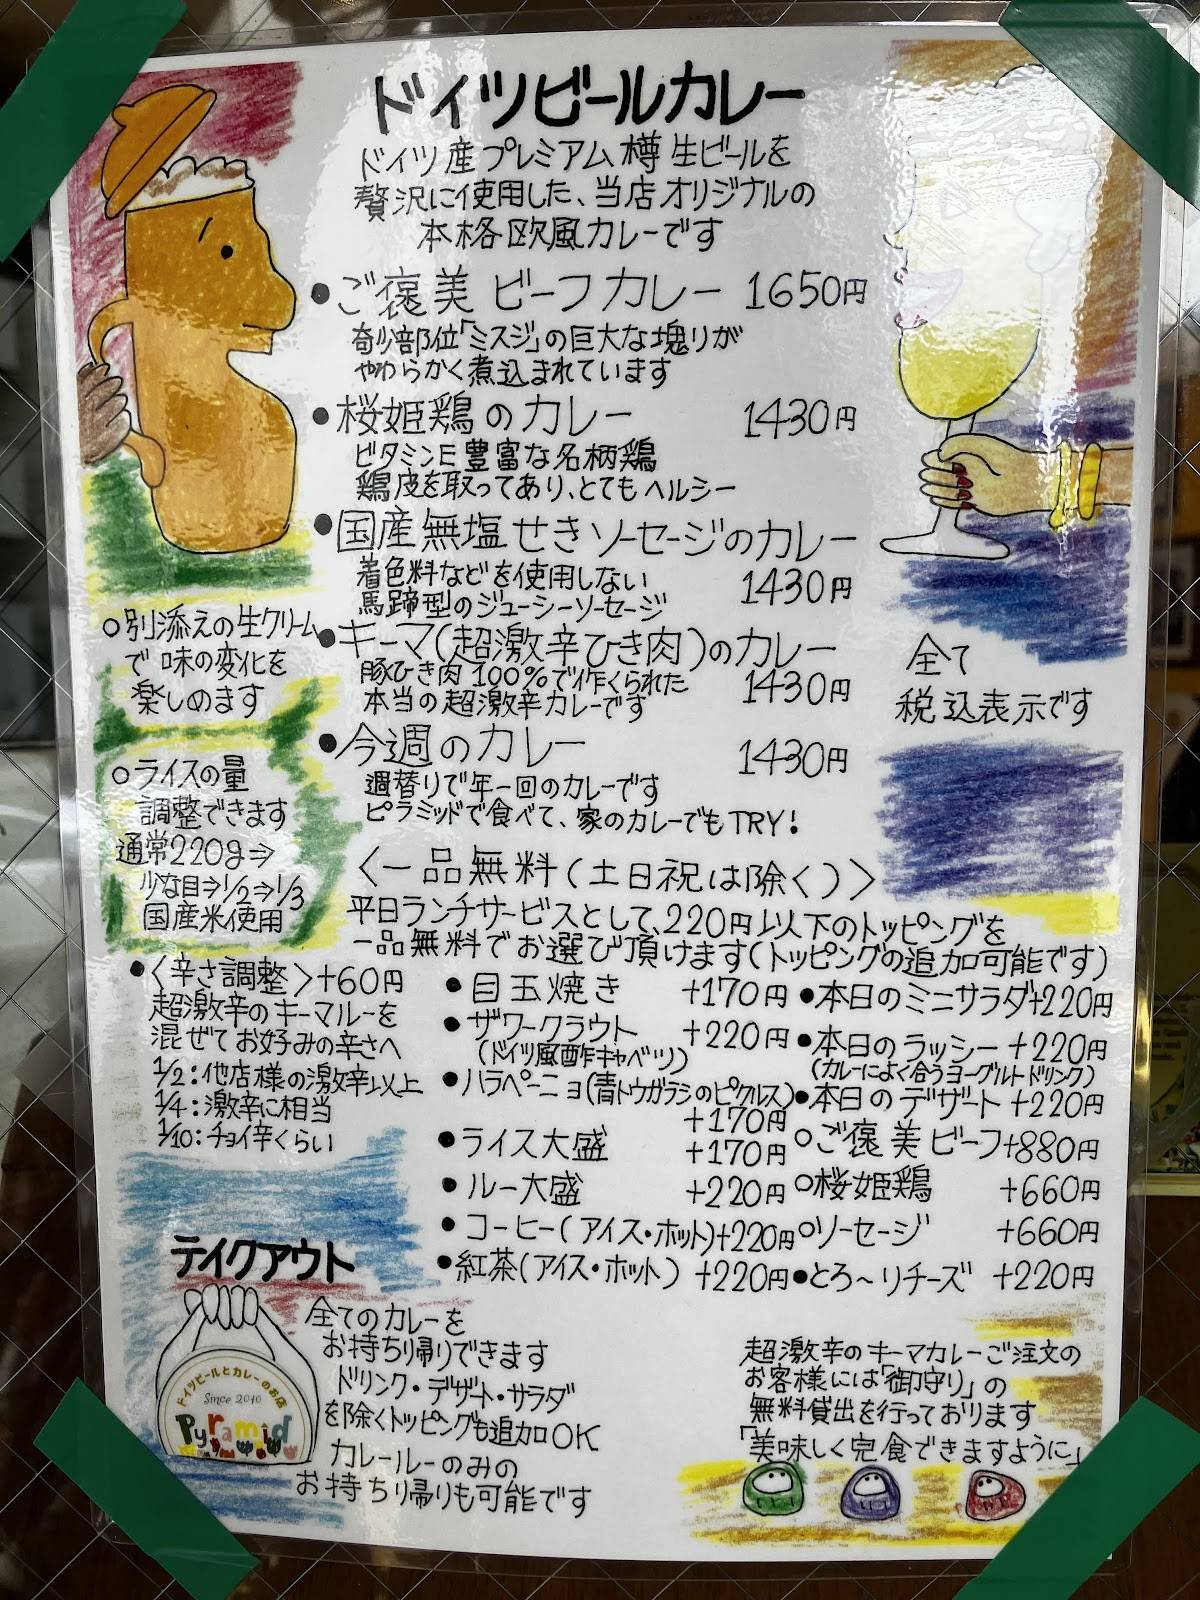 ドイツビールカレー
ドイツ産プレミアム樽生ビールを
贅沢に使用した、当店オリジナルの
本格欧風カレーです
●ご褒美ビーフカレー 1650円
希少部位「ミスジ」の巨大な塊りが
やわらかく煮込まれています
●桜姫鶏のカレー 1430円
ビタミンE豊富な名柄鶏
鶏皮を取ってあり、とてもヘルシー
●国産無塩せきソーセージのカレー
着色料などを使用しない 1430円
馬蹄型のジューシーソーセージ
●キーマ(超激辛ひき肉)のカレー
豚ひき肉100%で作くられた 1430円
本当の超激辛カレーです
●今週のカレー 1430円
週替りで年一回のカレーです
ピラミッドで食べて、家のカレーでもTRY!
○別添えの生クリーム
で味の変化を
楽しめます
○ライスの量
調整できます
通常220g⇒
少な目⇒1/2⇒1/3
国産米使用
全て
税込表示です
〈一品無料(土日祝は除く)〉
平日ランチサービスとして、220円以下のトッピングを
一品無料でお選び頂けます(トッピングの追加可能です)
●〈辛さ調整〉+60円
超激辛のキーマルーを
混ぜてお好みの辛さへ
1/2:他店様の激辛以上
1/4:激辛に相当
1/10:チョイ辛くらい
●目玉焼き +170円
●ザワークラウト +220円
(ドイツ風酢作キャベツ)
●ハラペーニョ(青トウガラシのピクルス)
+170円
●ライス大盛 +170円
●ルー大盛 +220円
●コーヒー(アイス・ホット)+220円
●紅茶(アイス・ホット) +220円
●本日のミニサラダ+220円
●本日のラッシー +220円
(カレーによく合うヨーグルトドリンク)
●本日のデザート +220円
○ご褒美ビーフ+880円
○桜姫鶏 +660円
○ソーセージ +660円
●とろ～りチーズ +220円
テイクアウト
全てのカレーを
お持ち帰りできます
ドリンク・デザート・サラダ
を除くトッピングも追加OK
カレールーのみの
お持ち帰りも可能です
ドイツビールとカレーのお店
Since 2010
Pyramid
超激辛のキーマカレーご注文の
お客様には「御守り」の
無料貸出を行っております
「美味しく完食できますように」